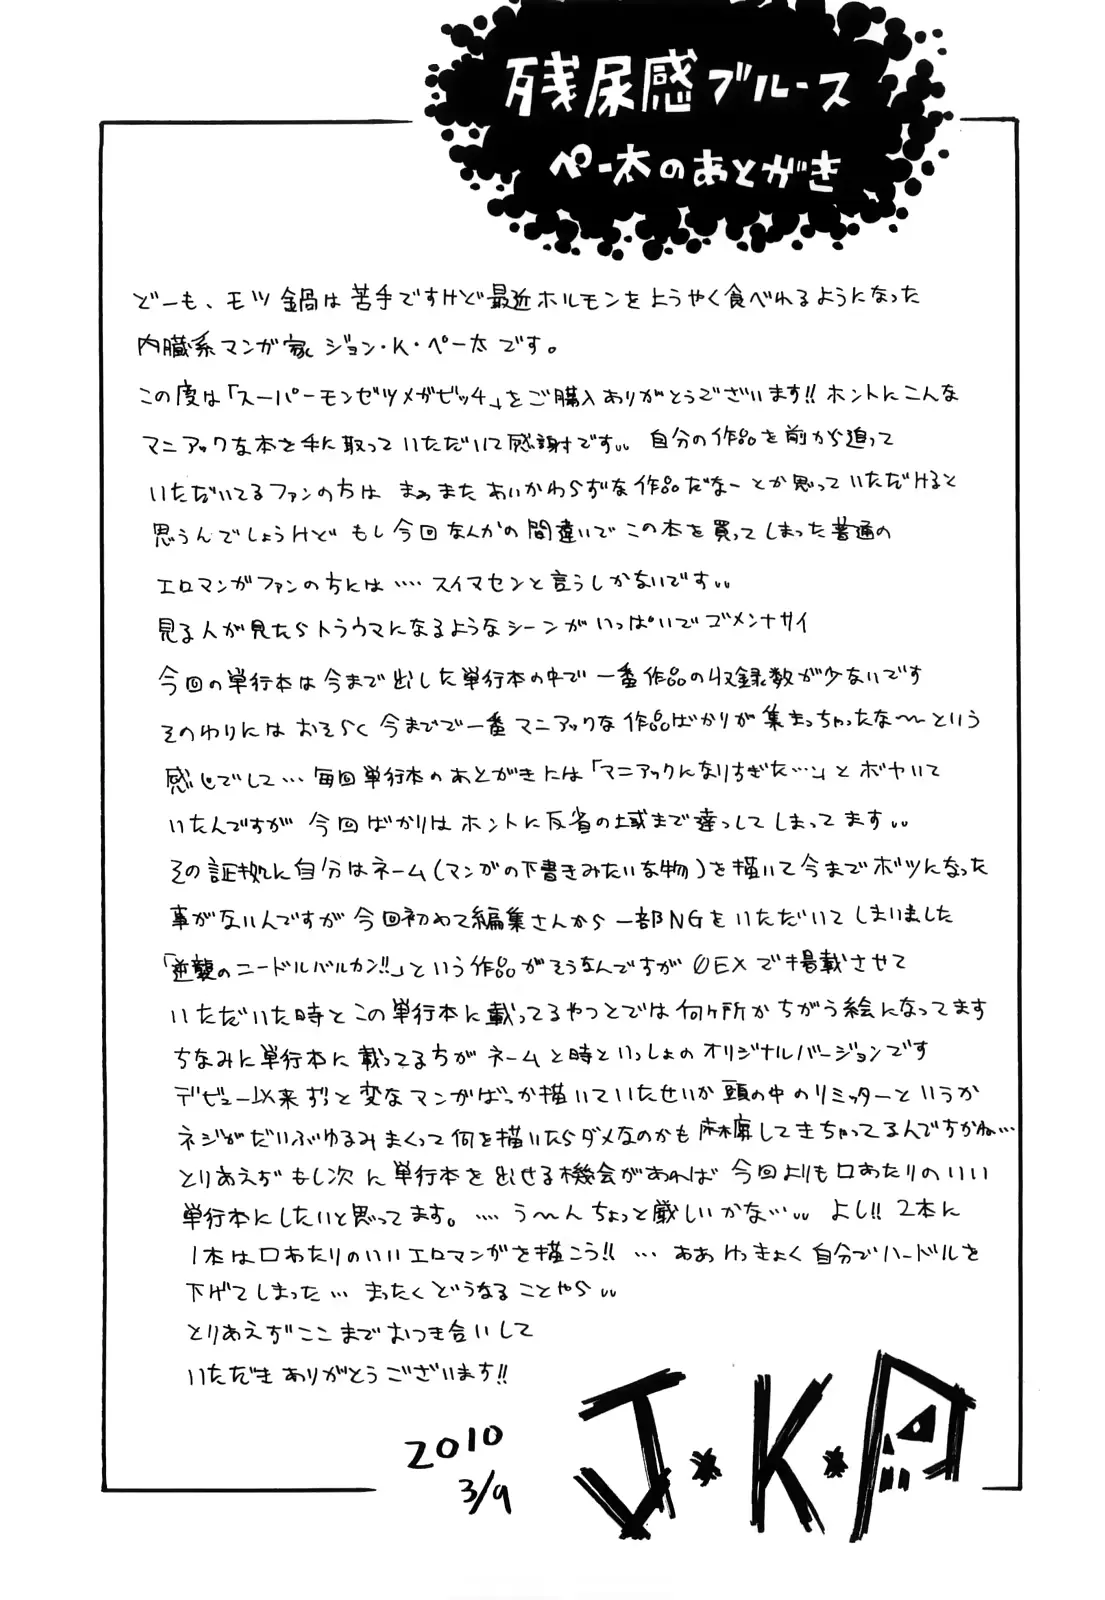 残尿感ブルース
ペー太のあとがき
どーも、モツ鍋は苦手ですけど最近ホルモンをようやく食べれるようになった
内臓系マンガ家ジョン・K・ペー太です。
この度は「スーパーモンゼツメガビッチ」をご購入ありがとうございます!!ホントにこんな
マニアックな本を手に取っていただいて感謝です。。自分の作品を前から追って
いただいてるファンの方はまぁまたあいかわらずな作品だなーとか思っていただけると
思うんでしょうけどもし今回なんかの間違いでこの本を買ってしまった普通の
エロマンガファンの方には‥‥スイマセンと言うしかないです。。
見る人が見たらトラウマになるようなシーンがいっぱいでゴメンナサイ
今回の単行本は今まで出した単行本の中で一番作品の収録数が少ないです
そのわりにはおそらく今までで一番マニアックな作品ばかりが集まっちゃったな〜という
感じでして…毎回単行本のあとがきには「マニアックになりすぎた…」とボヤいて
いたんですが今回ばかりはホントに反省の域まで達っしてしまってます。。
その証拠に自分はネーム(マンガの下書きみたいな物)を描いて今までボツになった
事がないんですが今回初めて編集さんから一部NGをいただいてしまいました
「逆襲のニードルバルカン!!」という作品がそうなんですが0EXで掲載させて
いただいた時とこの単行本に載ってるやつとでは何ヶ所かちがう絵になってます
ちなみに単行本に載ってる方がネームと時といっしょのオリジナルバージョンです
デビュー以来ずっと変なマンガばっか描いていたせいか頭の中のリミッターというか
ネジがだいぶゆるみまくって何を描いたらダメなのかも麻痺してきちゃってるんですかね…
とりあえずもし次に単行本を出せる機会があれば今回よりも口あたりのいい
単行本にしたいと思ってます。‥‥う〜んちょっと厳しいかな…。。よし!!2本に
1本は口あたりのいいエロマンガを描こう!!…ああけっきょく自分でハードルを
下げてしまった…まったくどうなることやら。。
とりあえずここまでおつき合いして
いただきありがとうございます!!
2010
3/9
J・K・P